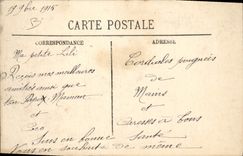 19 9bre 1915
B
CARTE POSTALE
CORRESPONDANCE
ADRESSE
Ma petite Lili
Reçois mes meilleures
amitiés ainsi que
ton Papa Maman
et
Cordiales poignées
de
Mains
et
Caresses à tous
Suis en bonne santé
Vous en souhaite de même